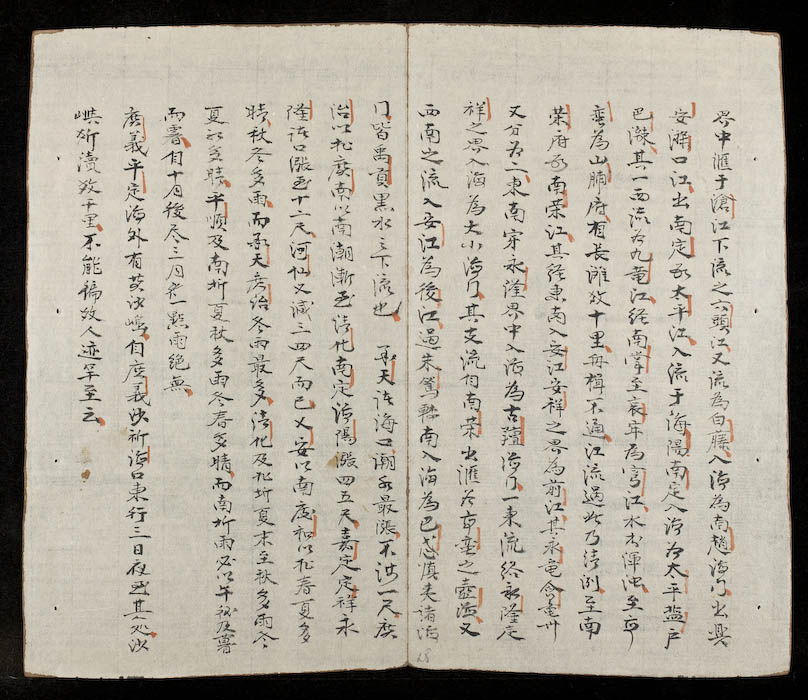 界中滙于滄江下流之六頭江又流為白藤入海為南趙海门出興
安海口江出南定承太平江入流于海陽南定入海为太平盐户
巴濼其一西流为九竜江经南掌至哀牢为穹江水最渾浊至
蛮為山腩府有長灘数十里舟楫不通江流過此乃清冽至南
荣府承南荣江其经東南入安江安祥之界為前江其永竜会
又分为二東南穿永隆界中入海為古㺔海门一東流络永隆定
祥之界入海為大小海门其支流自南荣出滙为
西南之流入安江為後江過朱篤轉南入海為巴忒填美諸海
门皆禹貢黑水之下流也 承天诸海口潮水最漲不过一尺廣
治以北廣南以南潮漸至清化南定海陽漲四五尺嘉定定祥永
隆诸口漲至十二尺河仙又减三四尺而已乂安以南廣和以北春夏多
晴秋冬多雨而承天廣治冬雨最多清化及北圻夏末至秋多雨冬
夏初多晴平順及南圻夏秋多雨冬春多晴而南圻雨必以午後及暮
而暮自十月後尽三月一點雨絕無
廣義平定海外有黄沙嶼自廣義沙祈海口東行三日夜至其处沙
磧斫濆数千里不能徧放人迹罕至云
18